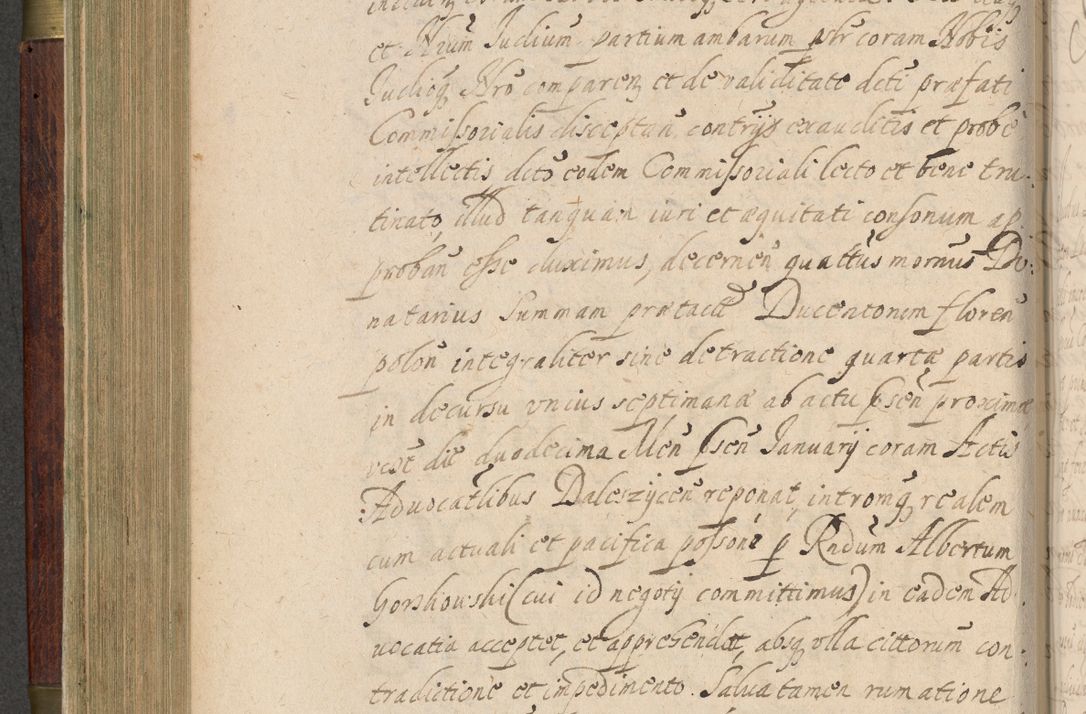 et Nrum Judium partium ambarum phr coram Nobis
Judicioq Nro comparen et de validitate dcti præfati
Commissorialis disceptan contrijs exauditis et probe
intellectis dcto eodem Commissoriali lecto et bene tru:
tinato illud tanquam iuri et æquitati consonum ap
proban esse duximus, decernen quattus mornus Do:
natarius Summam prætact Ducentorum floren
polon integraliter sine detractione quartæ partis
in decursu vnius septimanæ ab actu psen proximæ
vest die duodecima Men psen Januarij coram Actis
Advocatlibus Daleszycen reponat, intromq realem
cum actuali et pacifica possone p Rndum Albertum
Gorskowski (cui id negotij committimus) in eadem Ad:
vocatia acceptet, et apprehendat, absq vlla cittorum con:
tradictione et impedimento. Salua tamen rum atione